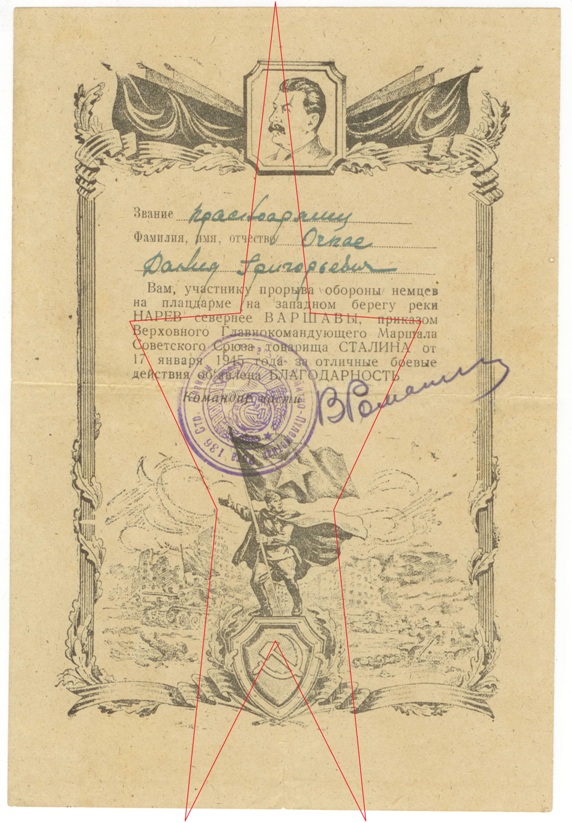 Звание красноармеец
Фамилия, имя, отчество Очкас
Давид Григорьевич
Вам, участнику прорыва обороны немцев
на плацдарме на западном берегу реки
НАРЕВ севернее ВАРШАВЫ, приказом
Верховного Главнокомандующего Маршала
Советского Союза товарища СТАЛИНА от
17 января 1945 года за отличные боевые
действия объявлена БЛАГОДАРНОСТЬ.
Командир части
136 Стр.